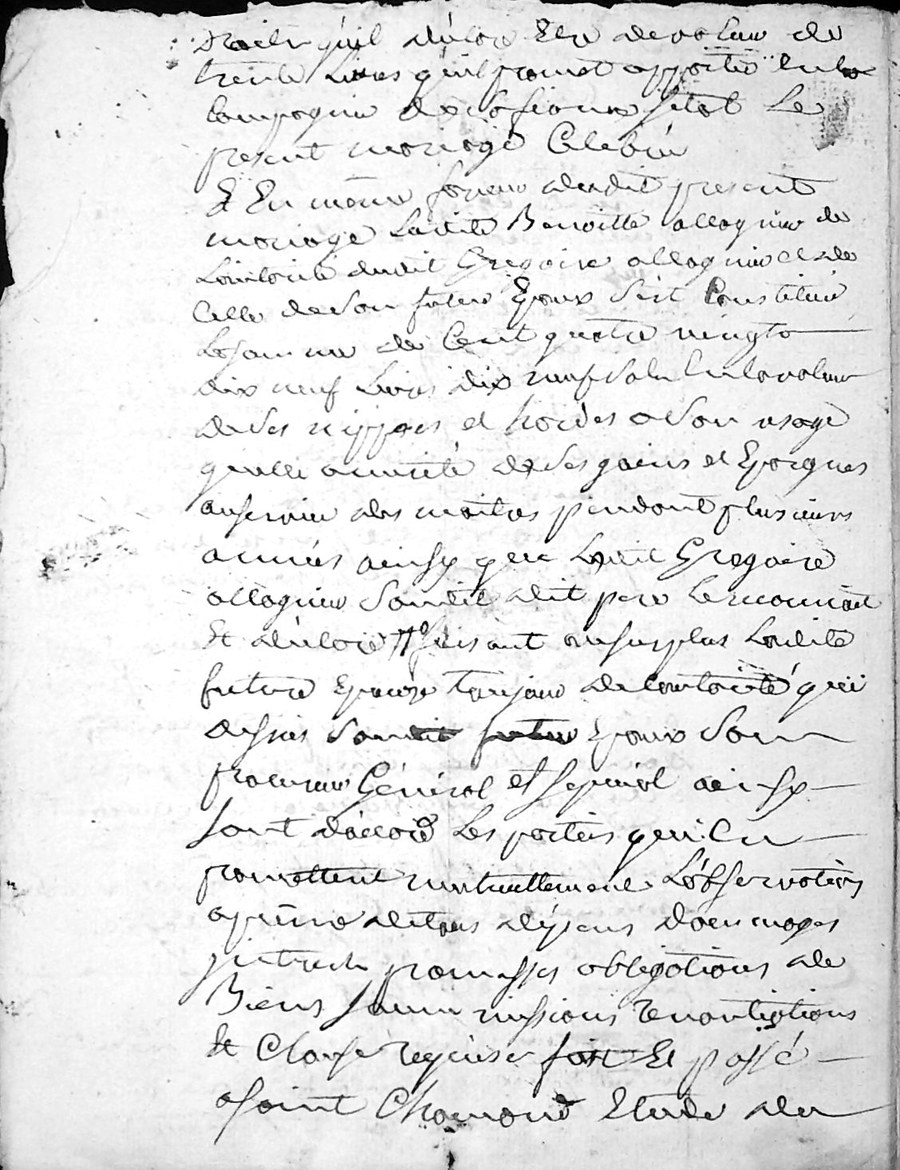 droits qu'il declare Etre de valeur de
trente Livres qu'il promet apporter en la
Compagnie de sa future sitot Le
present mariage Celebré
Et En même faveur dudit present
mariage Ladite Benoitte allognier de
Lautorité dudit Gregoire allognier et de
Celle de Son futur Epoux S'est Constitué
La somme de Cent quatre vingts
dix neuf Livres dix neuf sols En la valeur
de Ses nippes et hardes a Son usage
quelle a merité de Ses gains et Epargnes
au service des maitres pendant plusieurs
années ainsy que Ledit Gregoire
allognier Sondit pere Le reconnait
Et declare faisant au surplus Ladite
future Epouse toujours de Lautorité que
dessus Sondit futur Epoux Son
procureur Général et special ainsy
Sont d'accord Les parties qui En
promettent mutuellement L'observation
a peine de tous depens domages
interets promesses obligations de
Biens Soumissions renontiations
Et Clause requise fait Et passé
a Saint Chamond Etude de